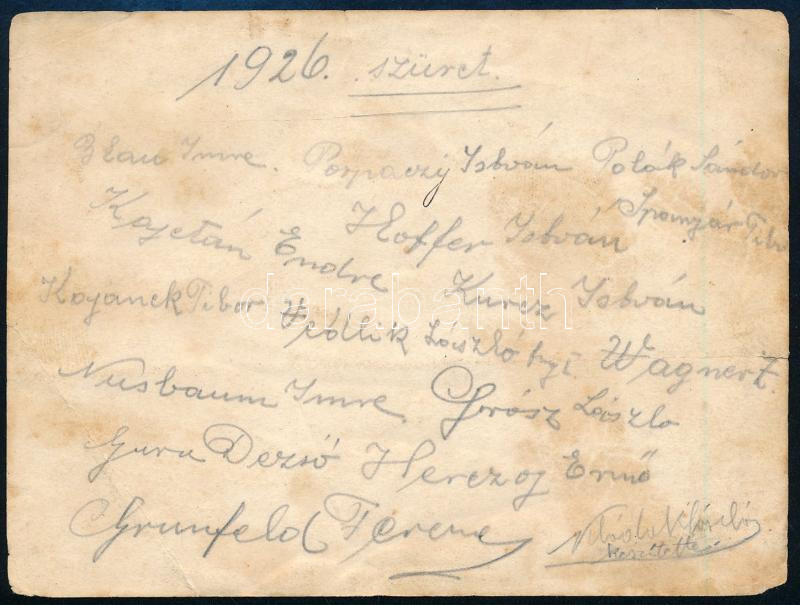 1926. szüret.
Blau Imre. Porpaczy István Polák Sándor
Kajetán Endre Hoffer István Spanyár Tibor
Kojanek Tibor Hedlik László hgz Kurcz István
Wagner Z.
Nusbaum Imre Grósz László
Gura Dezső Herczog Ernő
Grunfeld Ferenc
készítette
darabanth